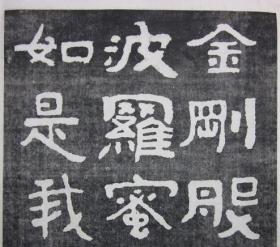 金剛般
波羅蜜
如是我